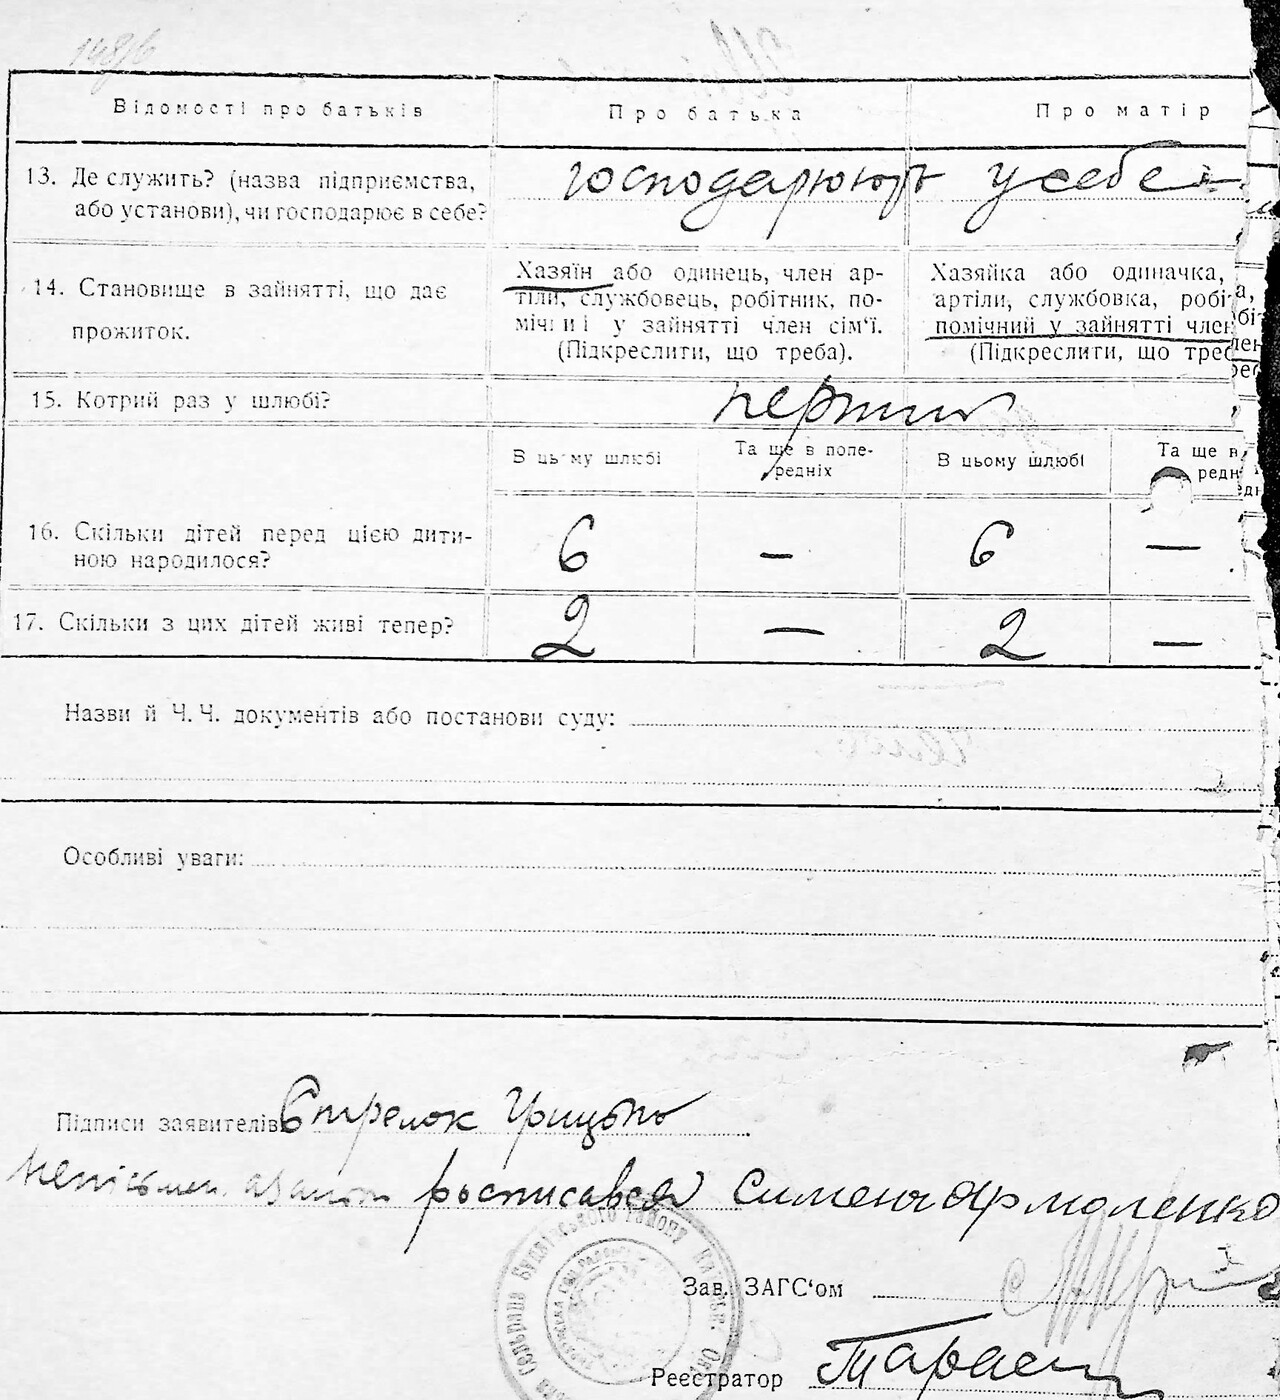 148/6
Відомості про батьків Про батька Про матір
13. Де служить? (назва підприємства, або установи), чи господарює в себе?
господарюють у себе
14. Становище в зайнятті, що дає прожиток.
Хазяїн або одинець, член ар-
тіли, службовець, робітник, по-
мічниі у зайнятті член сім'ї.
(Підкреслити, що треба).
Хазяйка або одиначка,
артіли, службовка, робі
помічний у зайнятті член
(Підкреслити, що треб
15. Котрий раз у шлюбі?
первий
В цьому шлюбі Та ще в попе-
редніх В цьому шлюбі Та ще в
редн
16. Скільки дітей перед цією дити-
ною народилося?
6 — 6 —
17. Скільки з цих дітей живі тепер? 2 — 2 —
Назви й Ч. Ч. документів або постанови суду:
Особливі уваги:
Підписи заявителів Стрелок Грицько
росписався Симена Ярмоленко
Зав. ЗАГС'ом
Реєстратор